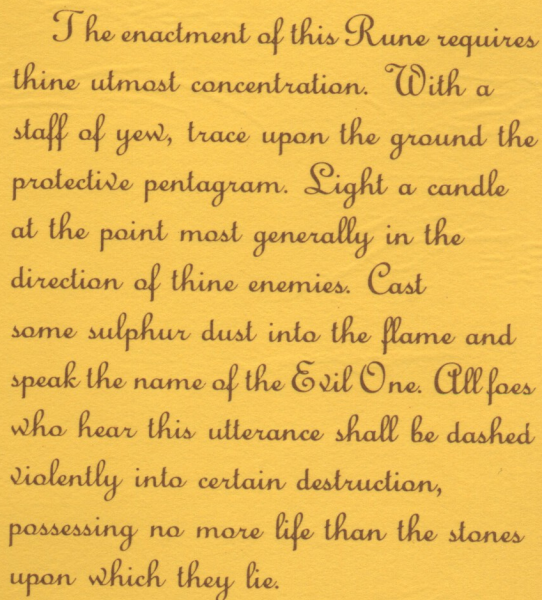 The enactment of this Rune requires
thine utmost concentration. With a
staff of yew, trace upon the ground the
protective pentagram. Light a candle
at the point most generally in the
direction of thine enemies. Cast
some sulphur dust into the flame and
speak the name of the Evil One. All foes
who hear this utterance shall be dashed
violently into certain destruction,
possessing no more life than the stones
upon which they lie.